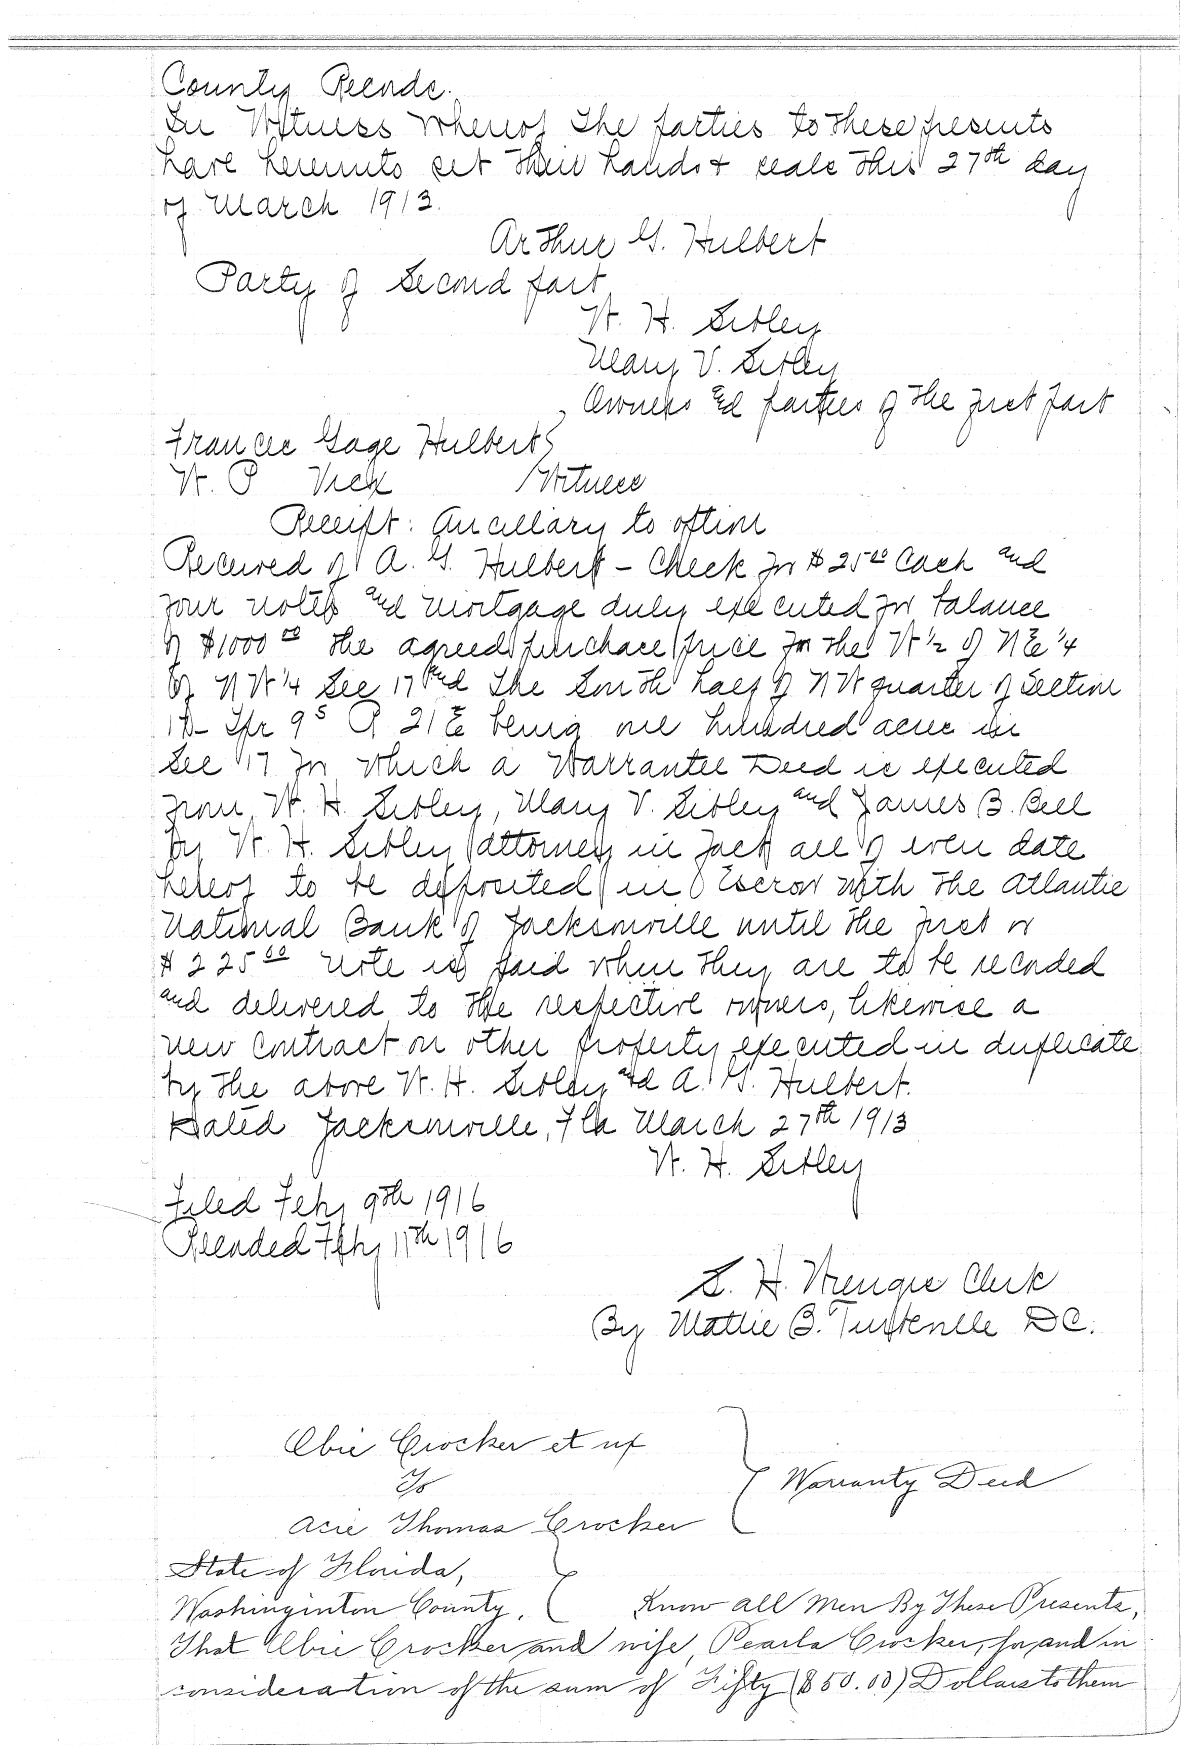 County Records.
In Witness whereof The parties to These presents
have hereunto set Their hands & seals This 27th day
of March 1913.
Arthur G. Hulbert
Party of Second part
W. H. Sibley
Mary V. Sibley
Owners and parties of The first part
Frances Gage Hulbert
W. P. Vick Witness
Receipt: Ancillary to option
Received of A. G. Hulbert - Check for $25 00 Cash and
four notes and mortgage duly executed for balance
of $1000 00 The agreed purchase price for The W 1/2 of NE 1/4
of NW 1/4 Sec 17 and The South half of NW quarter of Section
17 - Tpr 9 S R 21 E being one hundred acres in
Sec 17 for which a Warrantee Deed is executed
from W. H. Sibley, Mary V. Sibley and James B. Bell
by W. H. Sibley attorney in fact all of even date
hereof to be deposited in Escrow with The Atlantic
National Bank of Jacksonville until The first or
$225 00 note is paid when They are to be recorded
and delivered to The respective owners, likewise a
new contract on other property executed in duplicate
by The above W. H. Sibley and A. G. Hulbert.
Dated Jacksonville, Fla March 27th 1913
W. H. Sibley
Filed Feby 9th 1916
Recorded Feby 11th 1916
S. H. Clerk
By Mattie B. D C.
Obie Crocker et ux
To
Acie Thomas Crocker
Warranty Deed
State of Florida,
Washinginton County. Know all Men By These Presents,
That Obie Crocker and wife, Pearla Crocker, for and in
consideration of the sum of Fifty ($50.00) Dollars to them